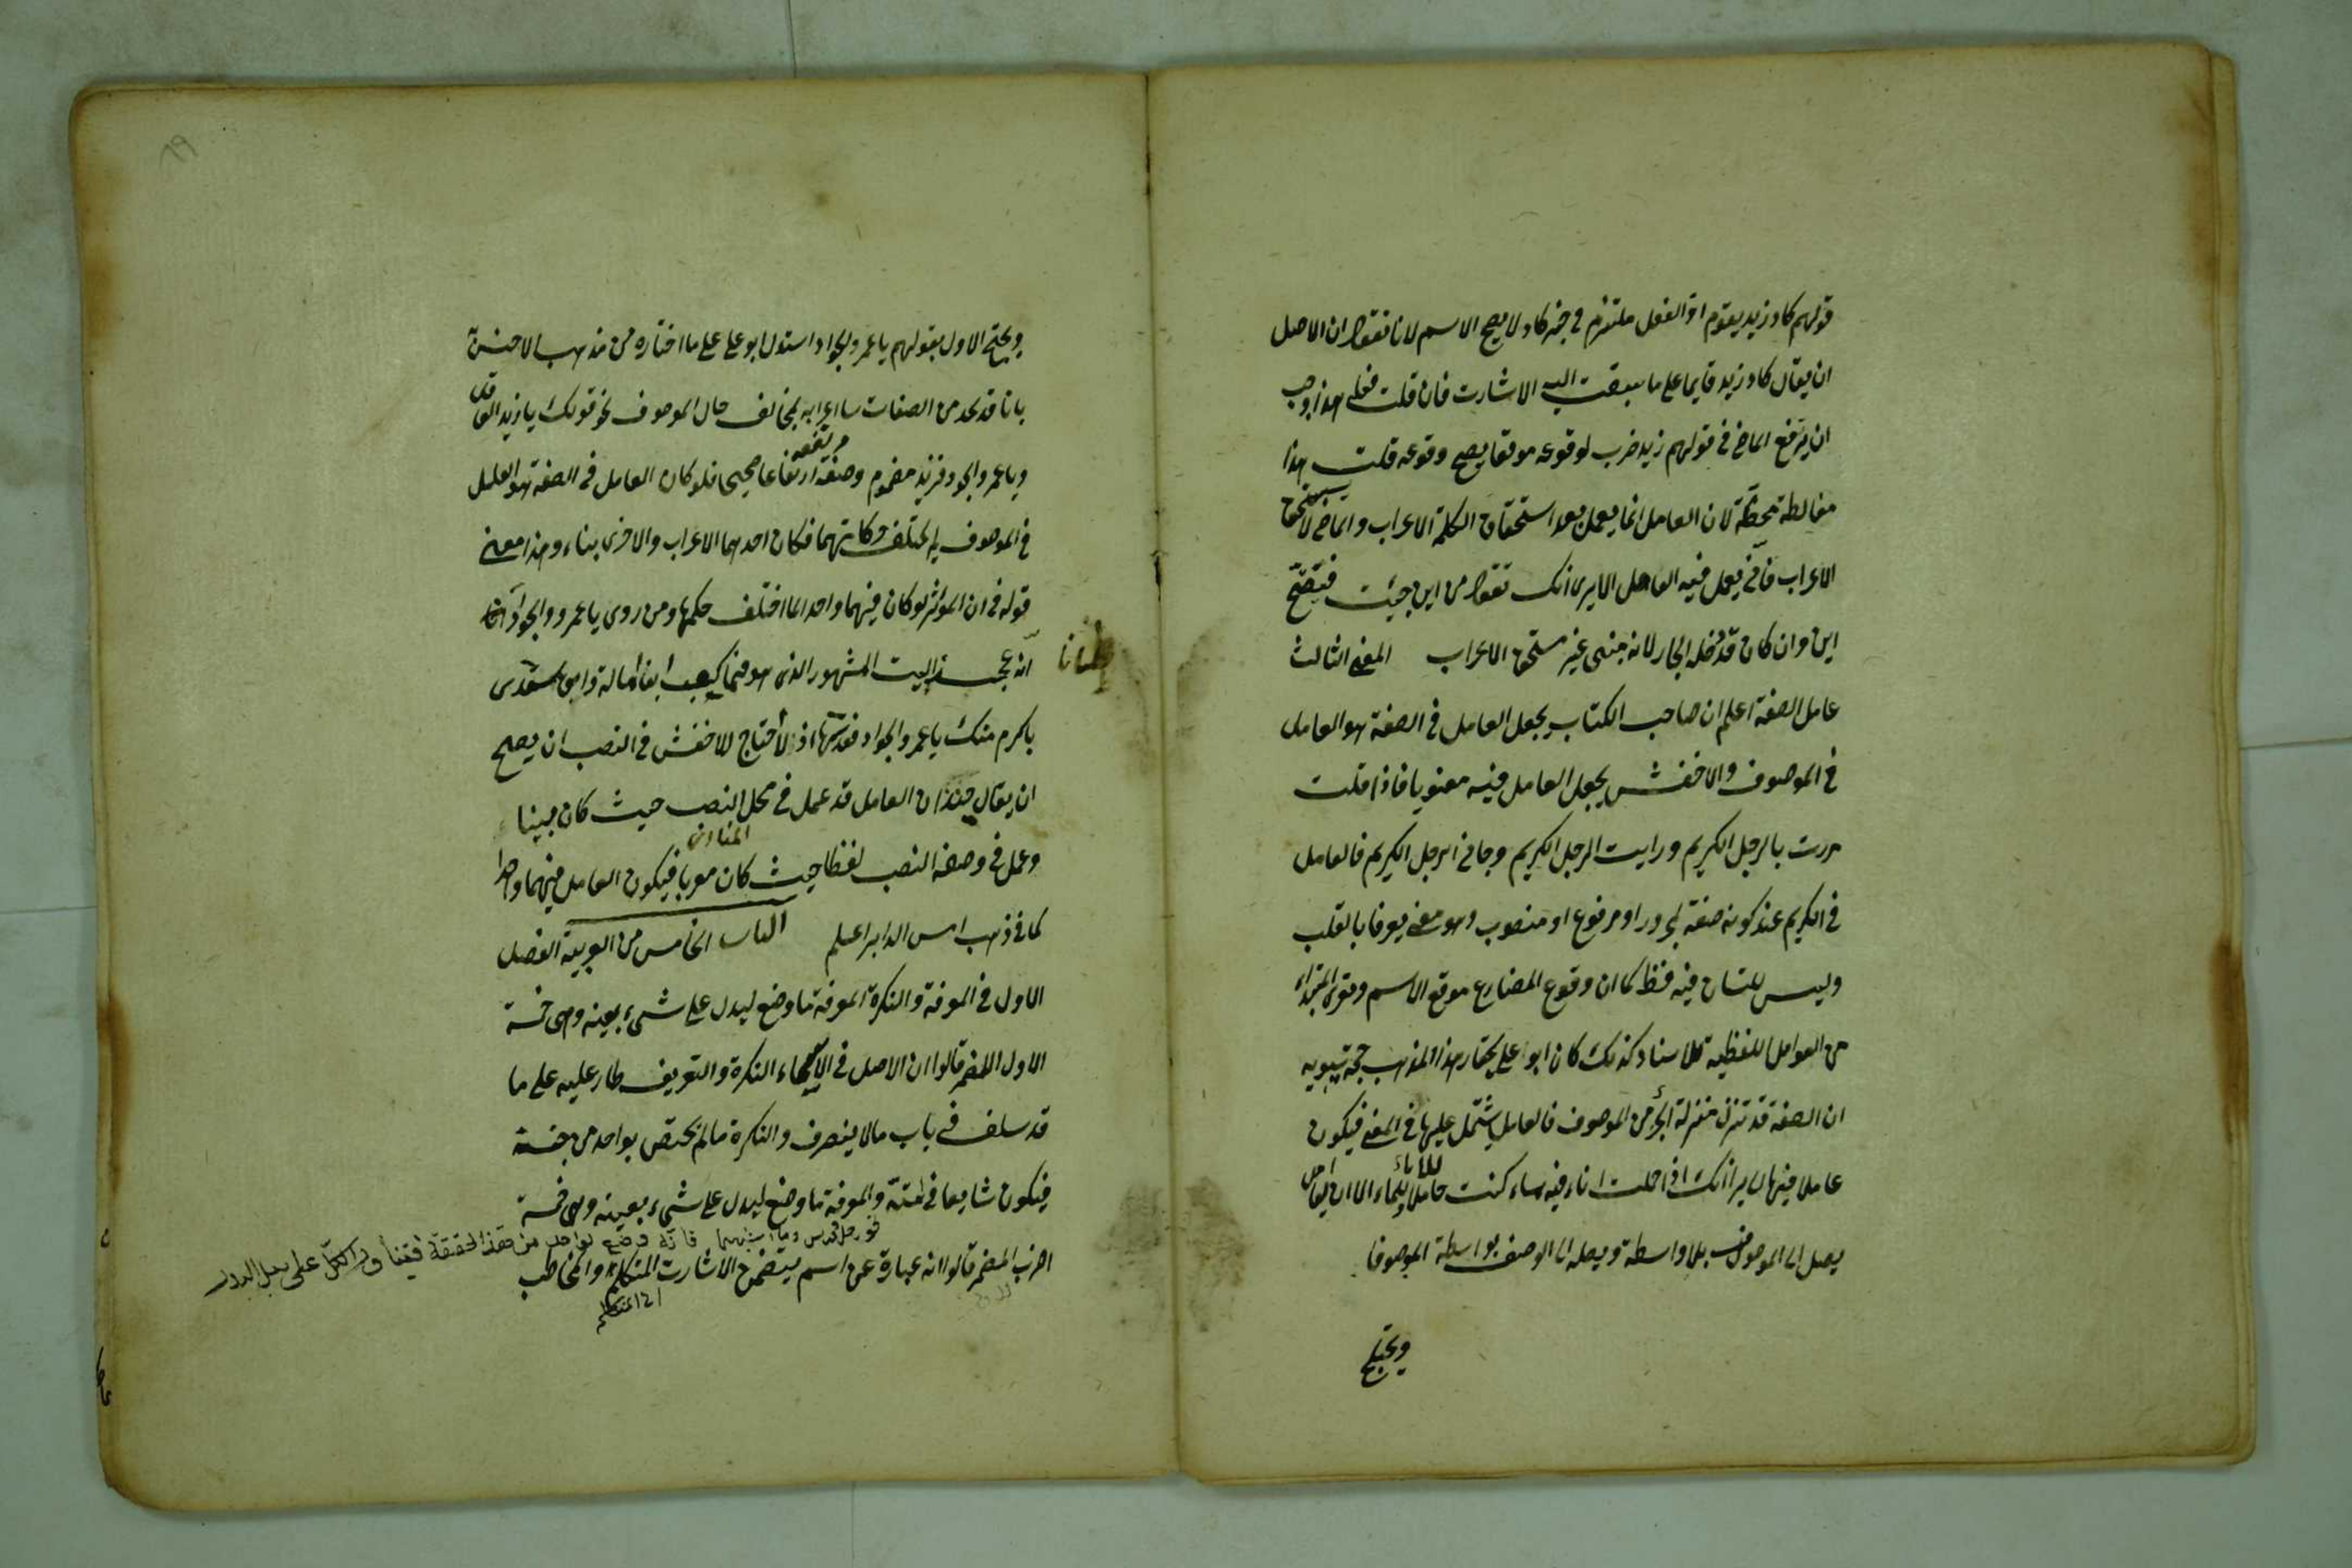 قولهم كاد زيد يقوم اذ الفعل ملتزم في خبر كاد لا يصح الاسم لانا نقول ان الاصل
ان يقال كاد زيد قايما على ما سبقت اليه الاشارت فان قلت فعلى هذا وجب
ان يرتفع الماضي في قولهم زيد ضرب لوقوعه موقعا يصح وقوعه قلت هذا
مغالطة محضة لان العامل انما يعمل بعد استحقاق الكلمة الاعراب والماضي لا يستحق
الاعراب فانى يعمل فيه العامل الا يرى انك تقول من اين جيت فتفتح
اين وان كان قد دخله الجار لانه مبنى غير مستحق الاعراب المعنى الثالث
عامل الصفة اعلم ان صاحب الكتاب يجعل العامل في الصفة هو العامل
في الموصوف والاخفش يجعل العامل فيه معنويا فاذا قلت
مررت بالرجل الكريم ورايت الرجل الكريم وجانى الرجل الكريم فالعامل
في الكريم عند كونه صفة لمجرور او مرفوع او منصوب وهو معنى يعرف بالقلب
وليس للسان فيه حظ كما ان وقوع المضارع موقع الاسم وتعرى المبتداء
من العوامل اللفظية للاسناد كذلك كان ابو على يختار هذا المذهب حجة سيبويه
ان الصفة قد تنزل منزلة الجزء من الموصوف فالعامل يشتمل عليها في المعنى فيكون
عاملا فيها الا يرا انك اذا حملت اناء فيه ماء كنت حاملا للماء الا ان العامل
للاناء
يصل الى الموصوف بلا واسطة ويصل الى الوصف بواسطة الموصوف
ويحتج
ويحتج الاول بقولهم يا عمر والجواد استدل ابو على على ما اختاره من مذهب الاخفش
بانا قد نجد من الصفات ما اعرابه يخالف حال الموصوف نحو قولك يا زيد العاقل
ويا عمرو الجواد فزيد مضموم وصفة مرتفعة ارتفاعا صحيحا فلو كان العامل في الصفة هو العامل
في الموصوف لم يختلف حركاتهما فكان احدهما الاعراب والاخرى بناء وهذا معنى
قوله في ان المؤثر لو كان فيهما واحدا لما اختلف حكمها ومن روى يا عمرو الجوادا
البيت المشهور الذى هو فما كعب ابن مامة وابن سعدى
باكرم منك يا عمرو الجواد
ان يقال ان العامل قد عمل في محل النصب حيث كان مبينا
المنادى
وعمل في وصفه النصب لفظا حيث كان معربا فيكون العامل فيهما واحدا
كما ذهب اعلم الباب الخامس من العربية الفصل
الاول في المعرفة والنكرة المعرفة ما وضع ليدل على شىء بعينه وهى خمسة
الاول المضمر قالوا ان الاصل في الاسماء النكرة والتعريف طار عليه على ما
قد سلف في باب ما لا ينصرف والنكرة ما لم يختص بواحد من جنسه
فيكون شايعا في امته والمعرفة ما وضع ليدل على شىء بعينه وهى خمسة
نحو رجل وفرس وما اشبههما فانه وضع لواحد من هذا الحقيقة على سبيل البدل
اضرب المضمر قالوا انه عبارة عن اسم يتضمن الاشارت المتكلم والمخاطب